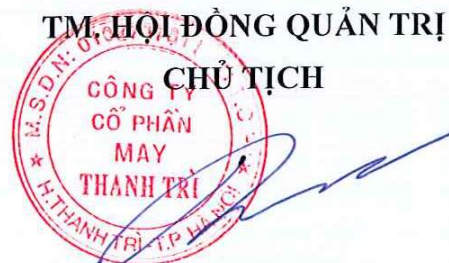 TM. HỘI ĐỒNG QUẢN TRỊ
CHỦ TỊCH
CÔNG TY
CỔ PHẦN
MAY
THANH TRÌ
M.S.D.N:
H.THANH TRÌ-T.P HÀ NỘI